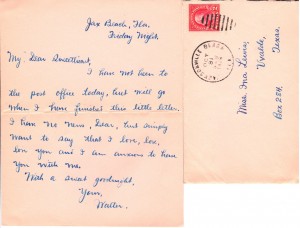 Jax Beach, Fla.
Friday Night.
My Dear Sweetheart,
I have not been to
the post office today, but will go
when I have finished this little letter.
I have no news, Dear, but simply
want to say that I love, love,
love you and I am anxious to have
you with me.
With a sweet goodnight,
Yours,
Walter.
JACKSONVILLE BEACH
FLA.
Miss Ina Lewis,
Uvalde,
Texas.
Box 254,